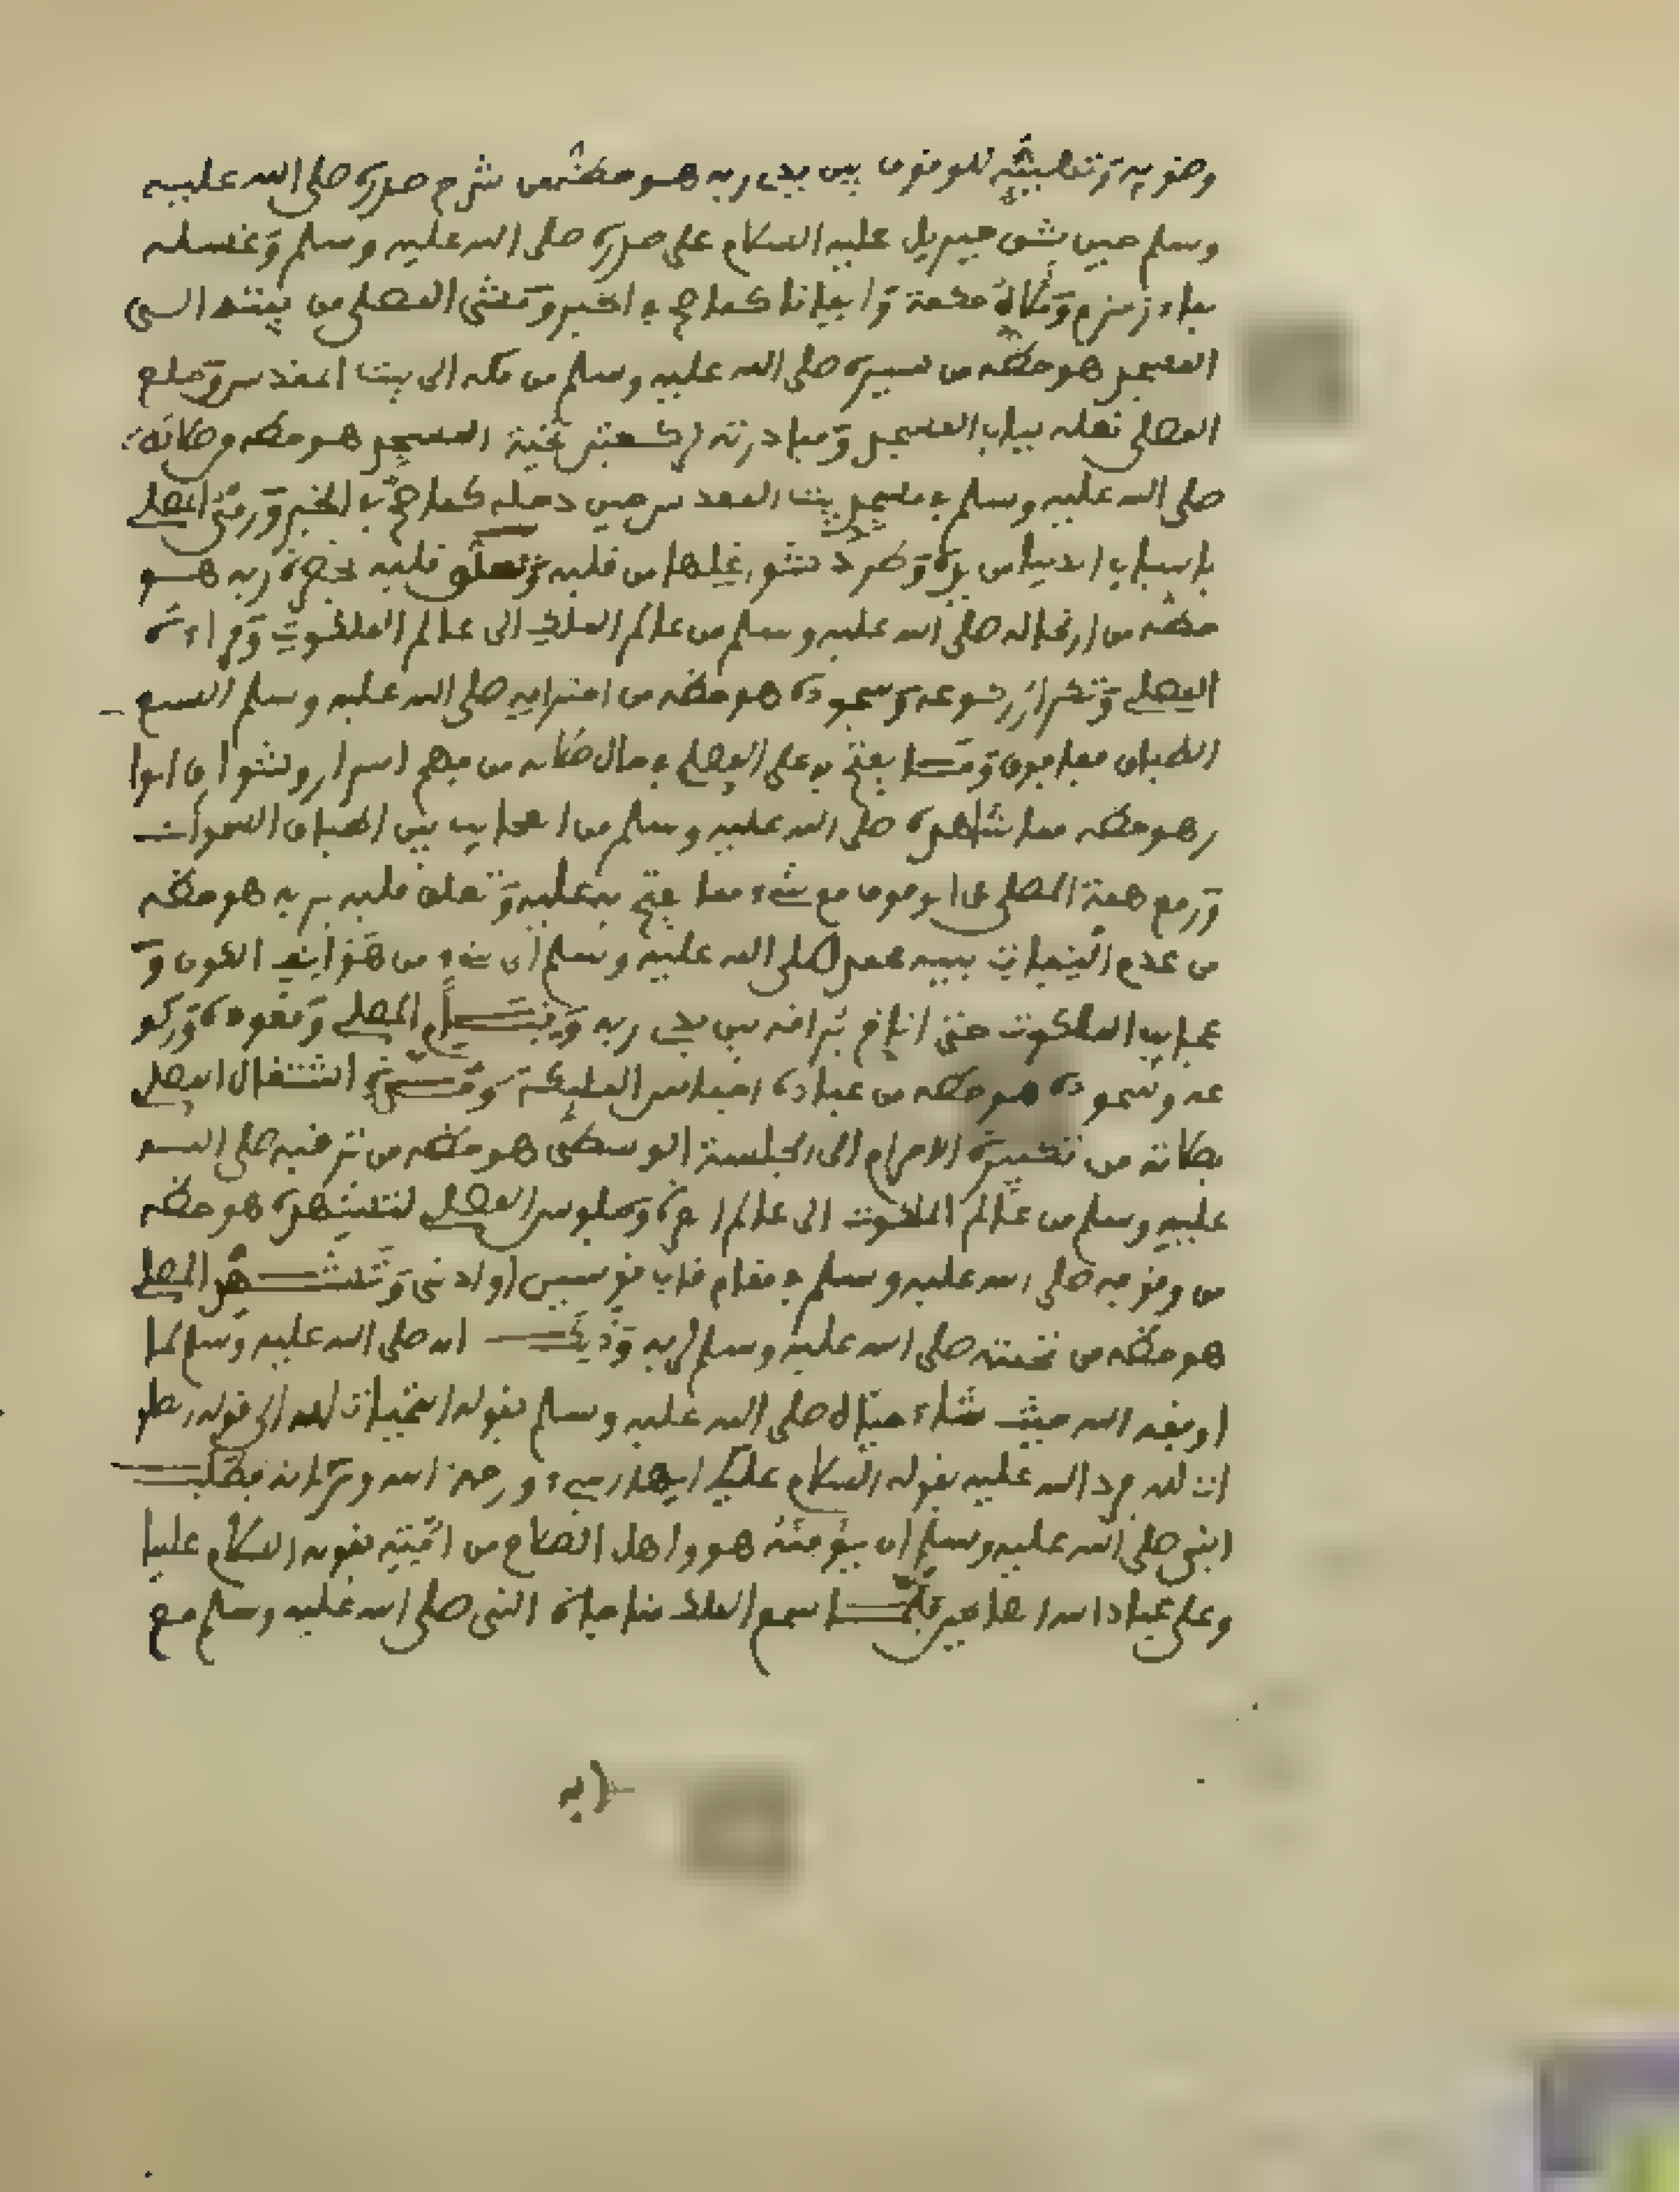 وضوءه وتطهيره للوقوف بين يدي ربه هو حظه من شرح صدره صلى الله عليه
وسلم حين شق جبريل عليه السلام على صدره صلى الله عليه وسلم وغسله
بماء زمزم وملاه حكمة وايمانا كما صح في الخبر ومشى المصلى من بيته الى
المسجد هو حظه من مسيره صلى الله عليه وسلم من مكه الى بيت المقدس وخلع
المصلى نعله بباب المسجد ومبادرته لركعتي تحية المسجد هو حظه من صلاته
صلى الله عليه وسلم في مسجد بيت المقدس حين دخله كما صح في الخبر ورمي المصلى
باسباب الدنيا من يده وطرد شواغلها من قلبه وتعلق قلبه بحضرة ربه هو
حظه من ارتحاله صلى الله عليه وسلم من عالم الملك الى عالم الملكوت وقراءة
المصلى وتكرار ركوعه وسجوده هو حظه من اختراقه صلى الله عليه وسلم السبع
الطباق فما فوق وما يفتح به على المصلى في حال صلاته من فهم اسرار وشوارق انوا
ر هو حظه مما شاهده صلى الله عليه وسلم من العجايب بين اطباق السموات
ورفع همة المصلى عن الوقوف مع شيء مما يفتح به عليه وتعلق قلبه بربه هو حظه
من عدم التفات نبيه محمد صلى الله عليه وسلم الى شيء من غرايب الكون و
عجايب الملكوت حتى اناخ براقه بين يدي ربه وقيام المصلى وقعوده وركو
عه وسجوده هو حظه من عبادة اجناس المليكة و اشتغال المصلى
بصلاته من تكبيرة الاحرام الى الجلسة الوسطى هو حظه من ترقيه صلى الله
عليه وسلم من عالم الملكوت الى عالم وجلوس المصلى لتشهده هو حظه
من وقوفه صلى الله عليه وسلم في مقام قاب قوسين او ادنى وتشهد المصلى
هو حظه من تحيته صلى الله عليه وسلم لربه وذلك انه صلى الله عليه وسلم لما
اوقفه الله حيث شاء حياه صلى الله عليه وسلم بقوله التحيات لله الى قوله الصلو
ات لله فرد الله عليه بقوله السلام عليك ايها النبيء ورحمة الله وبركاته فطلب
النبي صلى الله عليه وسلم ان يؤمنه هو واهل الصلاح من امته بقوله السلام علينا
وعلى عباد الله الصالحين فلما سمع الملك مناجاة النبي صلى الله عليه وسلم مع
ربه